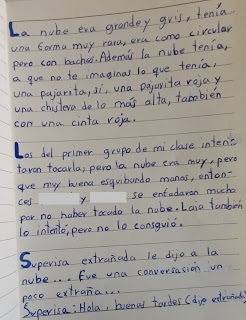 La nube era grande y gris, tenía
una forma muy rara, era como circular
pero con baches. Además la nube tenía,
a que no te imaginas lo que tenía,
una pajarita, sí, una pajarita roja y
una chistera de lo más alta, también
con una cinta roja.
Los del primer grupo de mi clase inten
taron tocarla, pero la nube era muy, pero
que muy buena esquibando manos, enton-
ces y se enfadaron mucho
por no haber tocado la nube. Laia también
lo intentó, pero no lo consguió.
Superisa extrañada le dijo a la
nube... Fue una conversación un
poco extraña...
Superisa: Hola, buenas tardes (dijo extrañada)